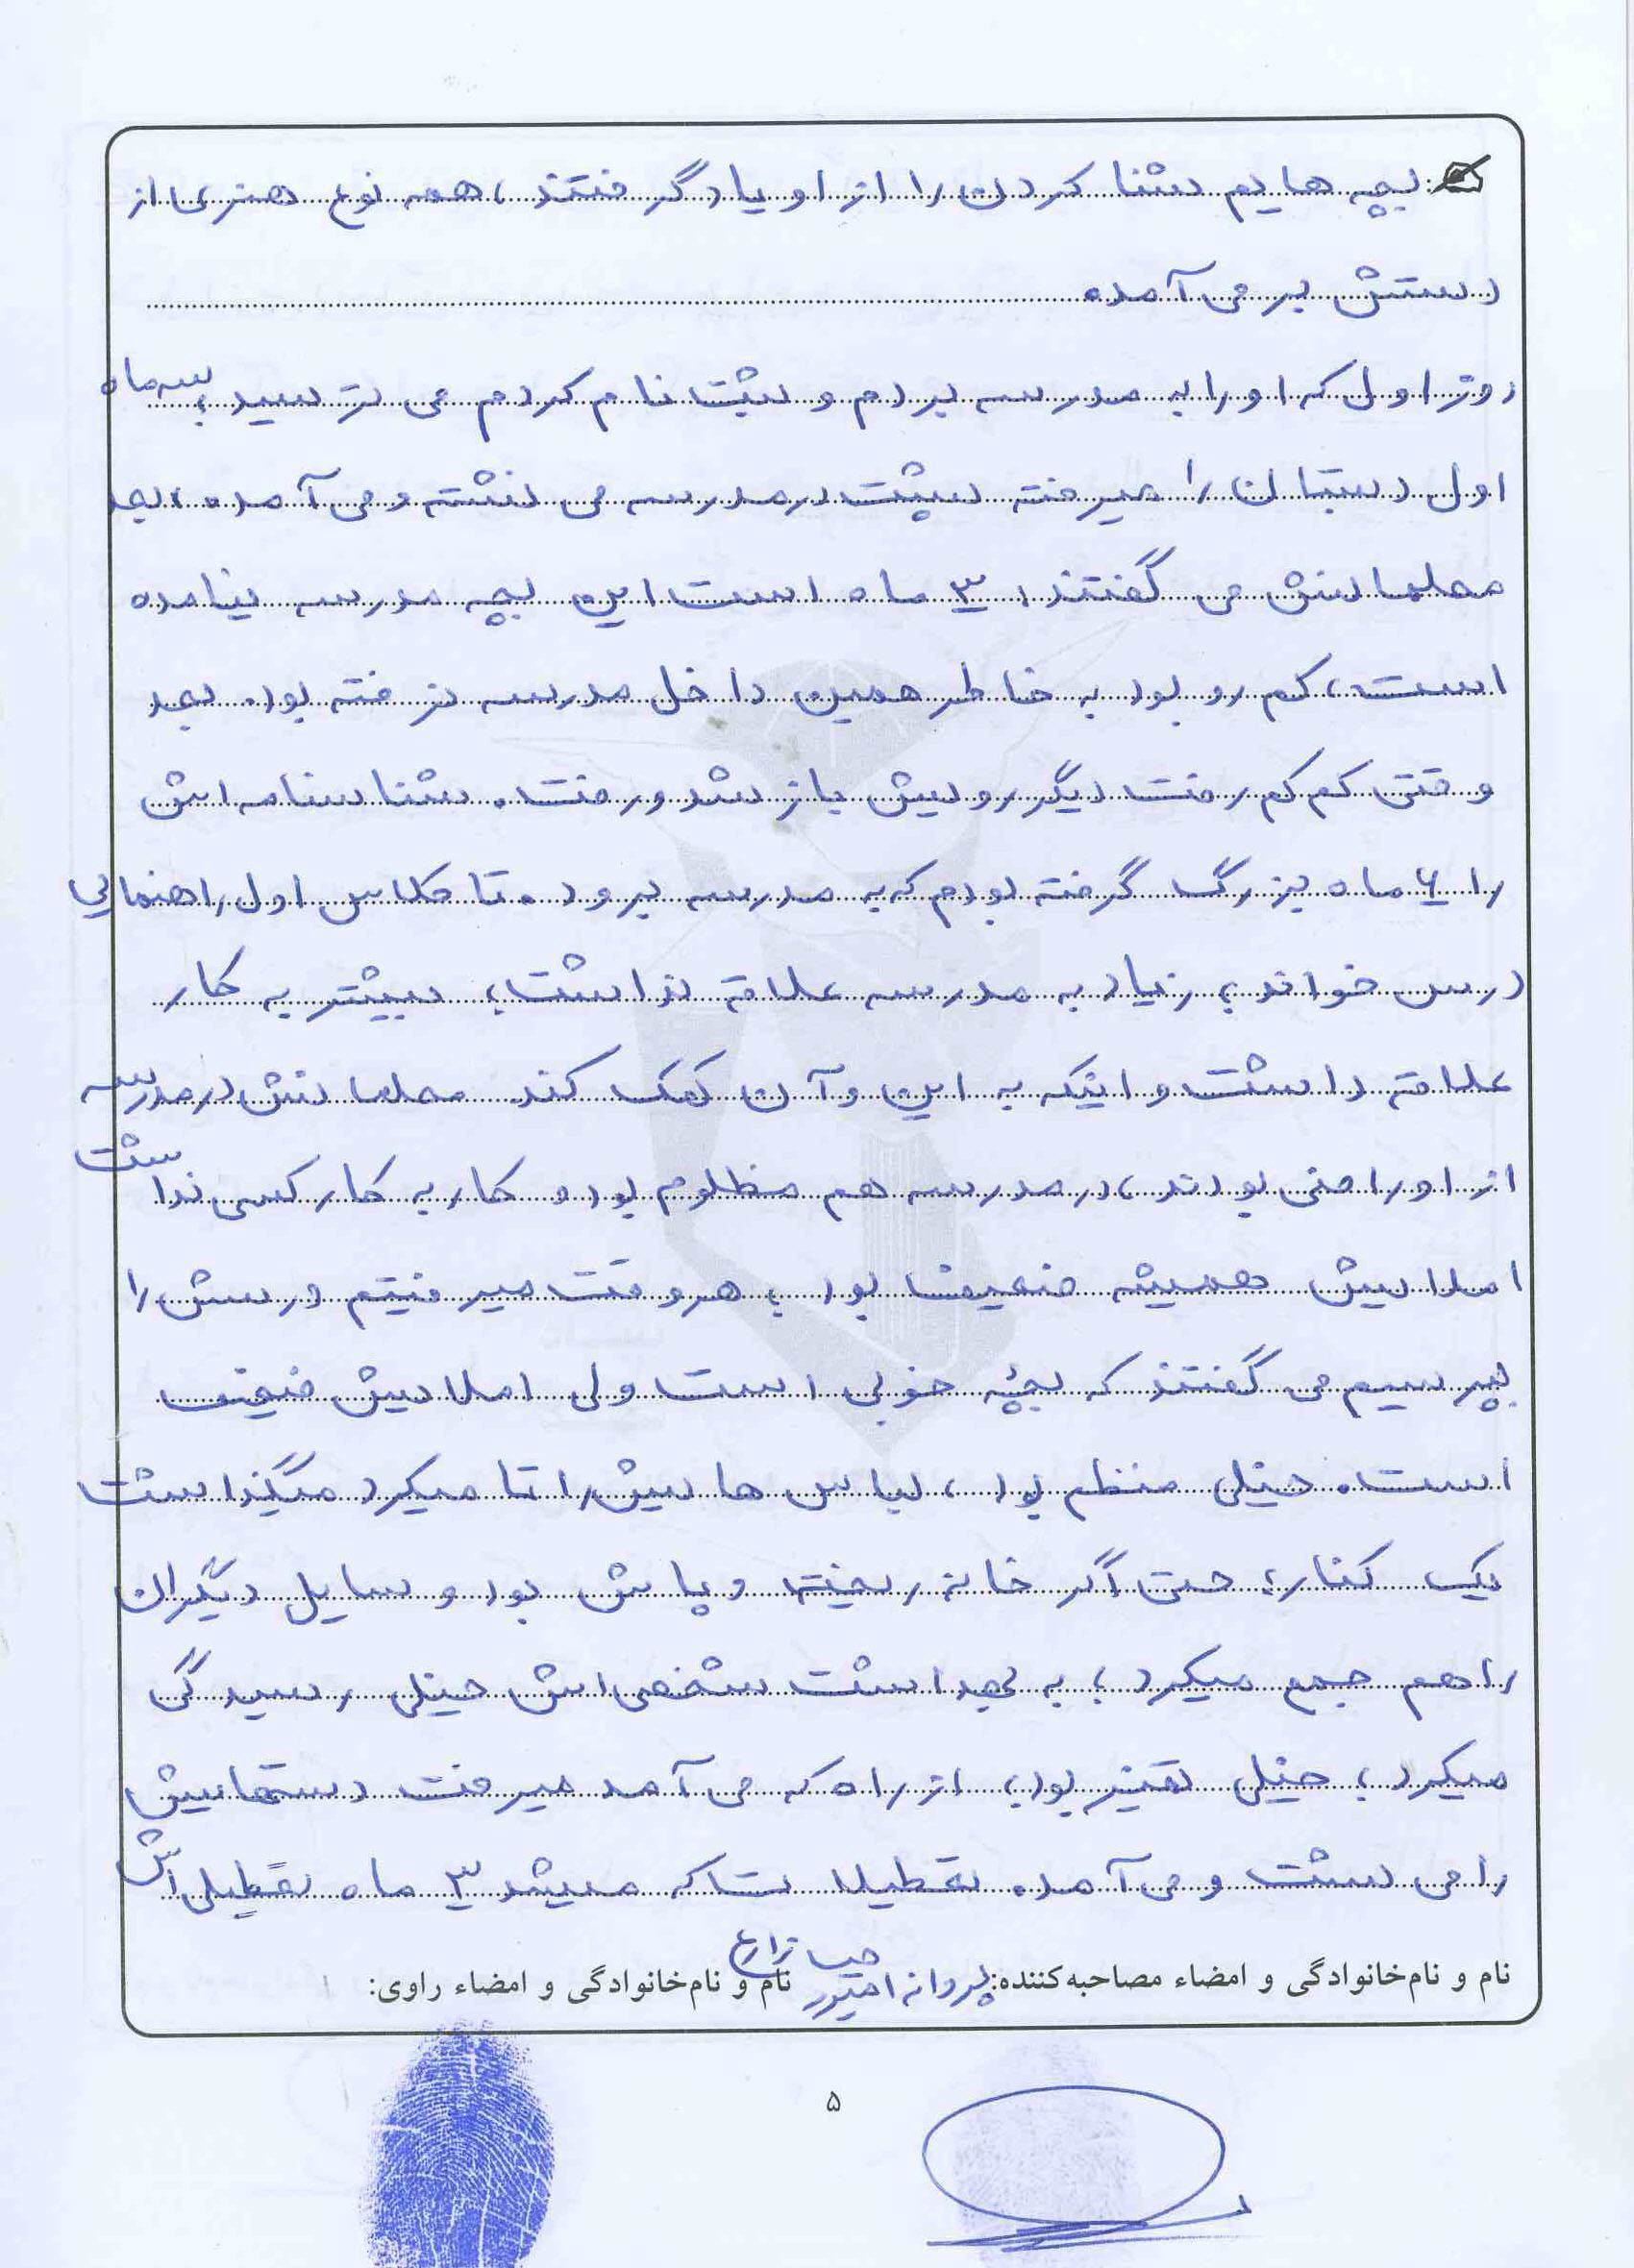 بچه هایم شنا کردن را از او یاد گرفتند، همه نوع هنری از
دستش بر می آمده
روز اول که او را به مدرسه بردم و ثبت نام کردم می ترسید؛ سه ماه
اول دبستان را میرفته پشت در مدرسه می نشسته و می آمده، بعد
معلمانش می گفتند، ۳ ماه است این بچه مدرسه نیامده
است، کم رو بود به خاطر همین داخل مدرسه نرفته بود. بعد
وقتی کم کم رفت دیگر رویش باز شد و رفت. شناسنامه اش
را ۶ ماه بزرگ گرفته بودم که به مدرسه برود. تا کلاس اول راهنمایی
درس خواند؛ زیاد به مدرسه علاقه نداشت؛ بیشتر به کار
علاقه داشت و اینکه به این و آن کمک کند. معلمانش در مدرسه
از او راضی بودند، در مدرسه هم مظلوم بود و کار به کار کسی نداشت
املایش همیشه ضعیف بود؛ هر وقت میرفتیم درسش را
بپرسیم می گفتند که بچهٔ خوبی است ولی املایش ضعیف
است. خیلی منظم بود، لباس هایش را تا میکرد میگذاشت
یک کنار؛ حتی اگر خانه ریخت و پاش بود وسایل دیگران
را هم جمع میکرد؛ به بهداشت شخصی اش خیلی رسیدگی
میکرد؛ خیلی تمیز بود؛ از راه که می آمد میرفت دستهایش
را می شست و می آمد. تعطیلات که میشد ۳ ماه تعطیلی اش
نام و نام‌خانوادگی و امضاء مصاحبه‌کننده: پروانه امیرر نام و نام‌خانوادگی و امضاء راوی:
زارع
۵